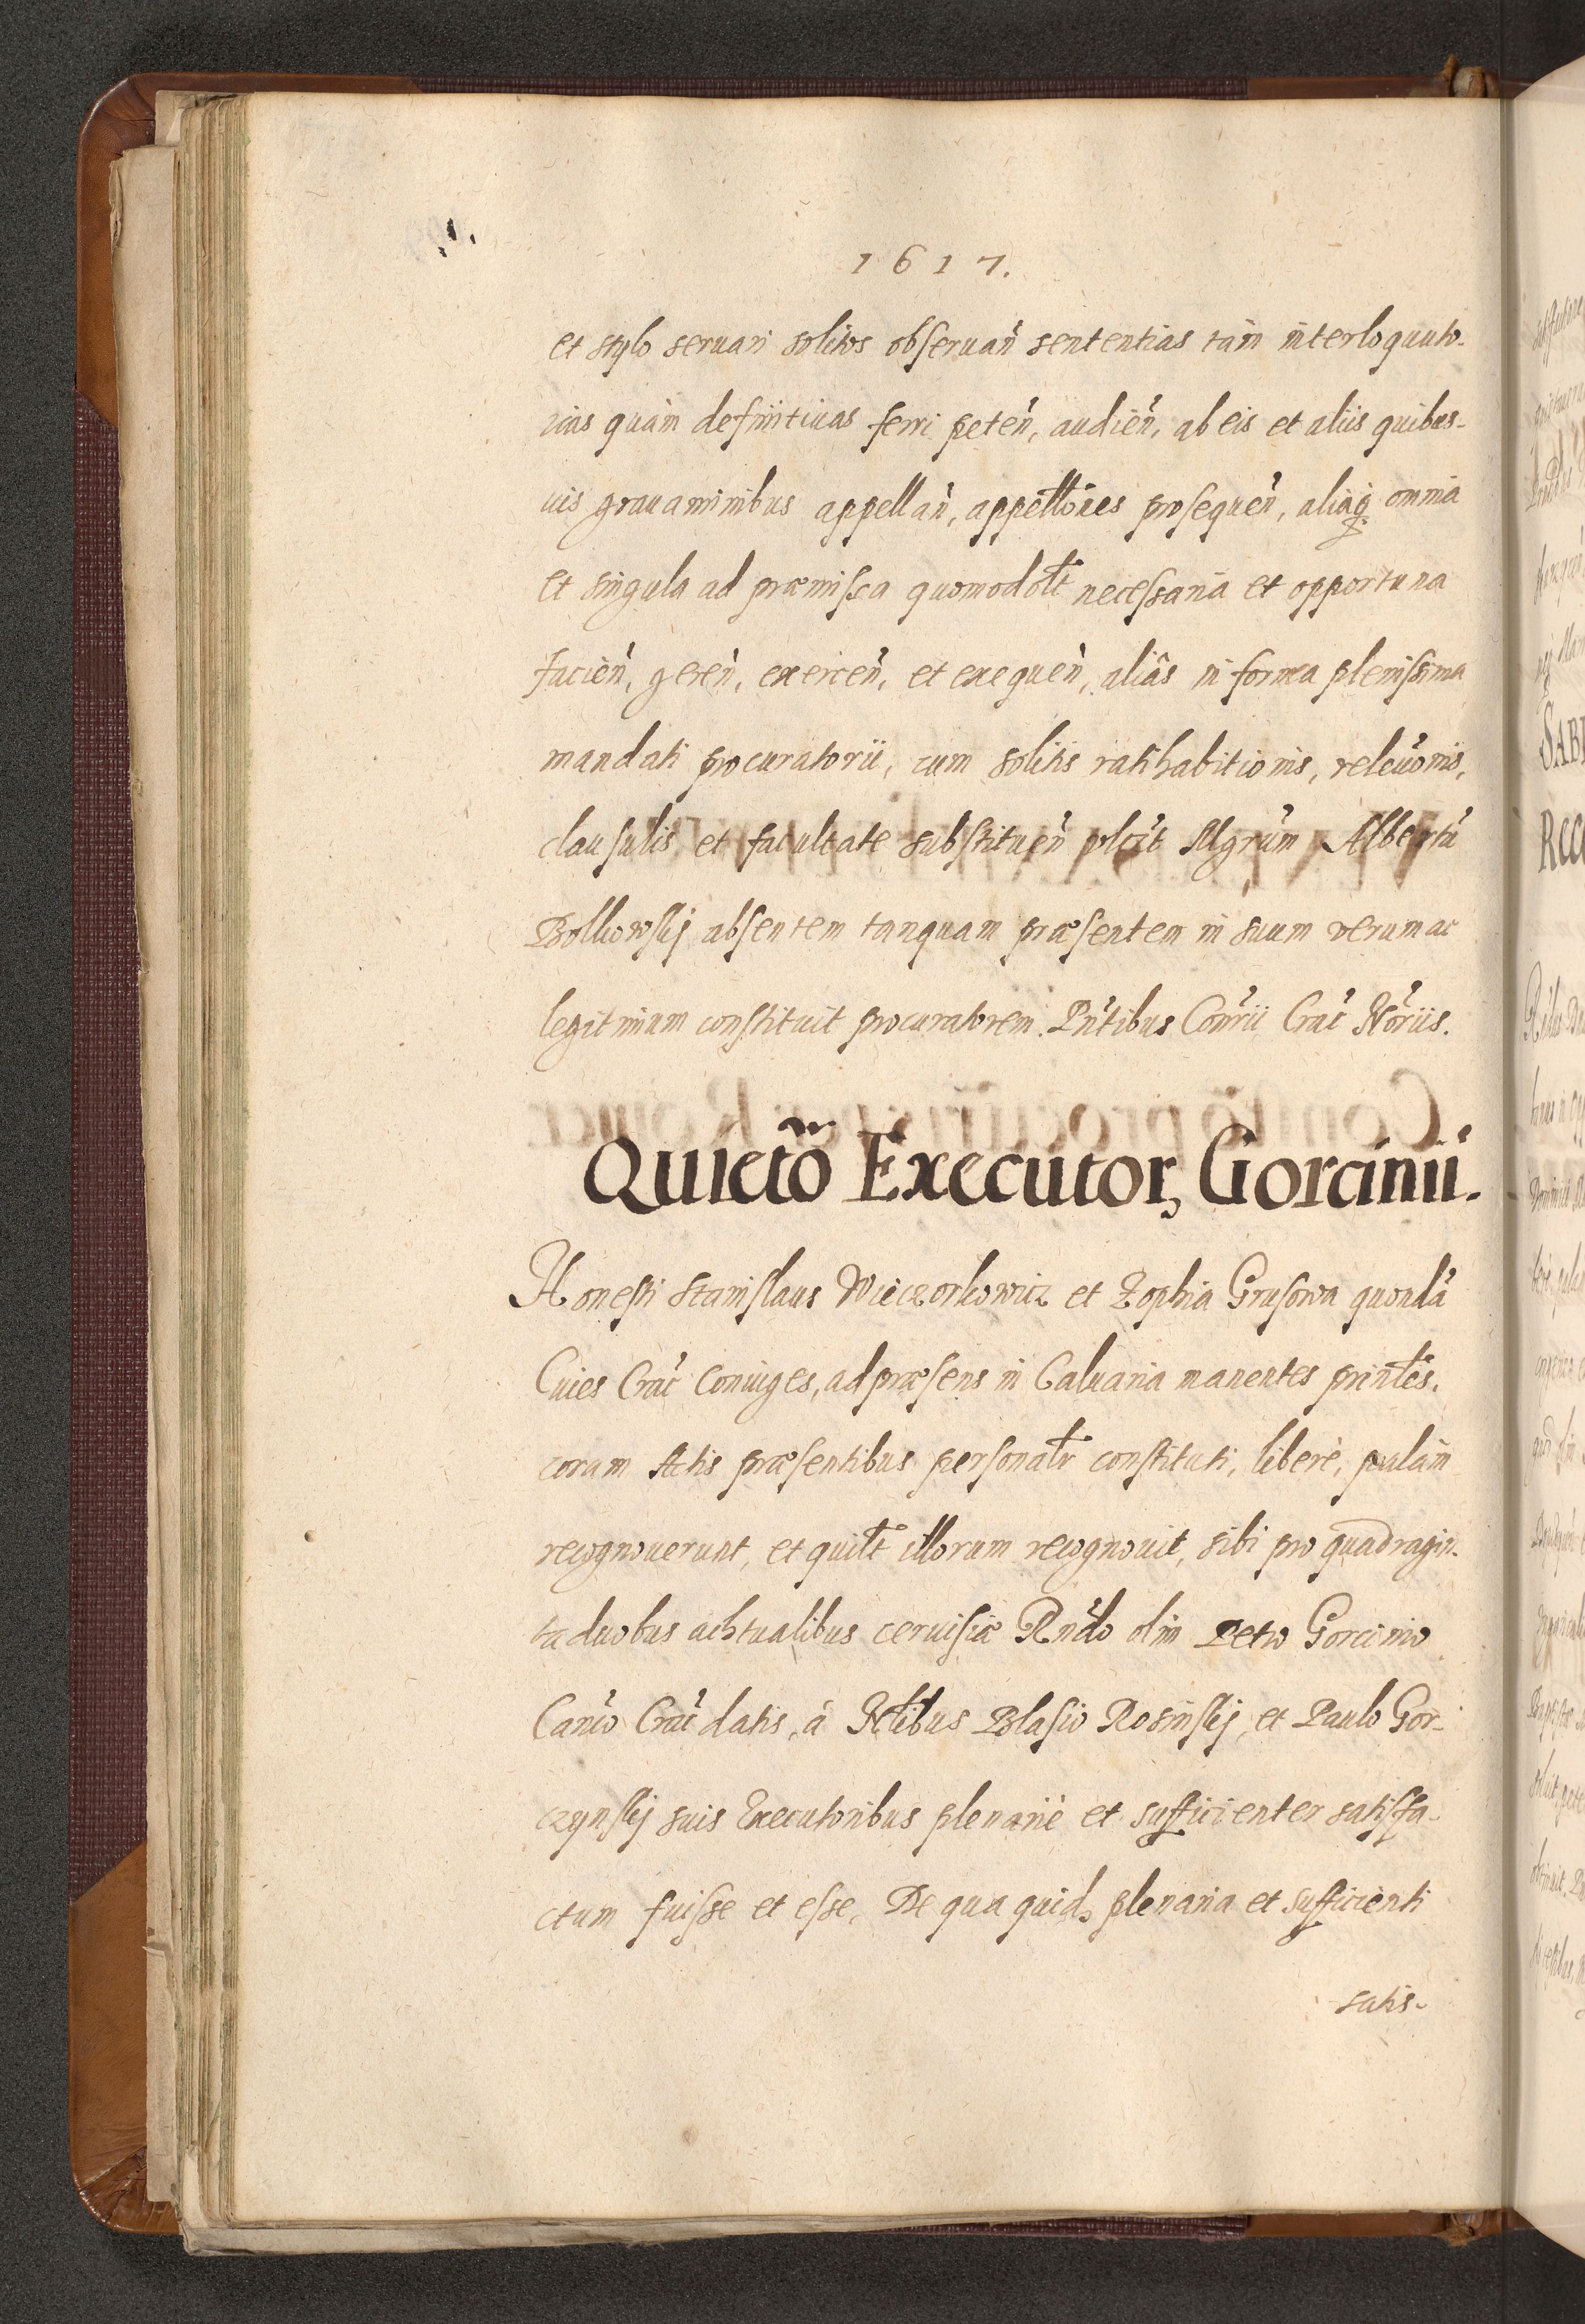 1617.
et stylo seruari solitos obseruań sententias tàm interloquuto-
rias quàm definitiuas ferri peteń, audień, ab eis et aliis quibus-
uis grauaminibus appellań, appelłones prosequeń, aliaq omnia
et singula ad præmissa quomodolt necessaria et opportuna
facień, gereń, exerceń, et exequeń, aliâs in forma plenissima
mandati procuratorii, cum solitis ratihabitionis, releuonis,
clausulis, et facultate substitueń Mgrum Albertu
Bolkowskj absentem tanquam præsentem in suum verum ac
legitimum constituit procuratorem. Pntibus Connrii Crac Noriis.
Quietõ Executor, Gorcinii.
Honesti Stanislaus Wieczorkowicz et Zophia Grusowa quonda
Ciues Crac Coniuges, ad præsens in Caluaria manentes printes.
coram Actis præsentibus personalr constituti, liberè, palàm
recognouerunt, et quilt illorum recognouit, sibi pro quadragin-
ta duobus achtualibus ceruisiæ Rndo olim Petro Gorcinio
Canco Crac datis, à Rndibus Blasio Rosinskj, et Paulo Gor-
czynskj suis Executoribus plenariè et sufficienter satisfa-
ctum fuisse et esse, De qua quid, plenaria et sufficienti
satis-